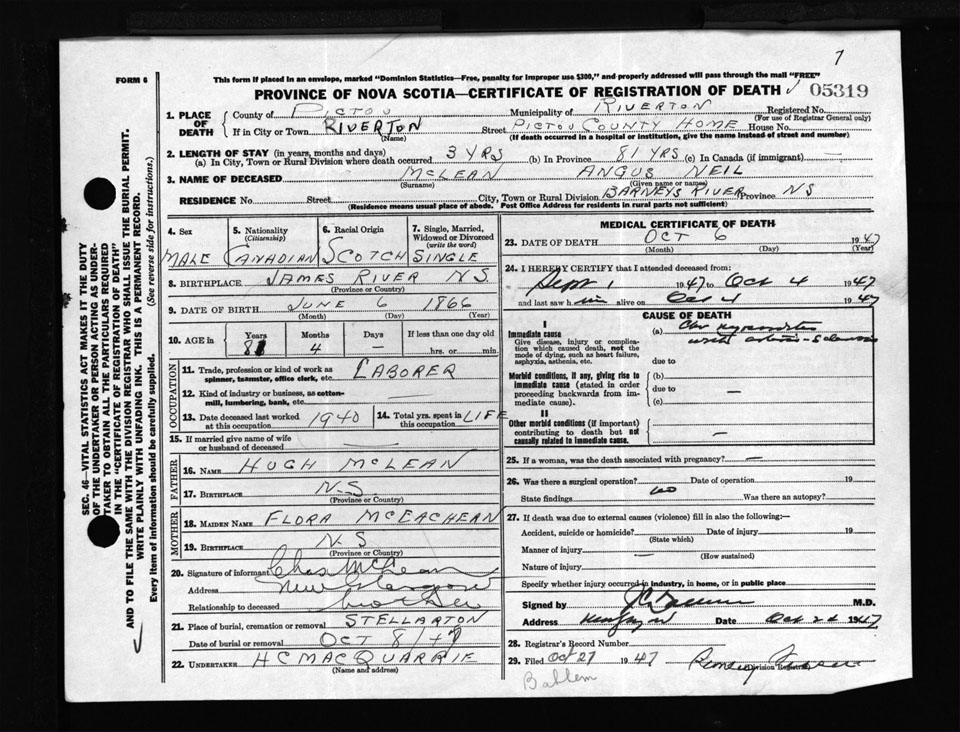 7
FORM 6
This form if placed in an envelope, marked "Dominion Statistics—Free, penalty for improper use $300," and properly addressed will pass through the mail "FREE"
PROVINCE OF NOVA SCOTIA—CERTIFICATE OF REGISTRATION OF DEATH 05319
SEC. 46—VITAL STATISTICS ACT MAKES IT THE DUTY
OF THE UNDERTAKER OR PERSON ACTING AS UNDER-
TAKER TO OBTAIN ALL THE PARTICULARS REQUIRED
IN THE "CERTIFICATE OF REGISTRATION OF DEATH"
AND TO FILE THE SAME WITH THE DIVISION REGISTRAR WHO SHALL ISSUE THE BURIAL PERMIT.
WRITE PLAINLY WITH UNFADING INK. THIS IS A PERMANENT RECORD.
Every item of information should be carefully supplied. (See reverse side for instructions.)
1. PLACE OF DEATH County of PICTOU Municipality of RIVERTON Registered No.
(For use of Registrar General only)
If in City or Town RIVERTON Street PICTOU COUNTY HOME House No.
(Name) (If death occurred in a hospital or institution, give the name instead of street and number)
2. LENGTH OF STAY (in years, months and days)
(a) In City, Town or Rural Division where death occurred 3 YRS (b) In Province 81 YRS (c) In Canada (if immigrant) —
3. NAME OF DECEASED MCLEAN ANGUS NEIL
(Surname) (Given name or names)
RESIDENCE No. Street City, Town or Rural Division BARNEYS RIVER Province NS
(Residence means usual place of abode. Post Office Address for residents in rural parts not sufficient)
4. Sex 5. Nationality (Citizenship) 6. Racial Origin 7. Single, Married, Widowed or Divorced (write the word)
MALE CANADIAN SCOTCH SINGLE
8. BIRTHPLACE JAMES RIVER N.S.
(Province or Country)
9. DATE OF BIRTH JUNE 6 1866
(Month) (Day) (Year)
10. AGE in Years Months Days If less than one day old
81 4 — hrs. or min.
OCCUPATION
11. Trade, profession or kind of work as LABORER
spinner, teamster, office clerk, etc.
12. Kind of industry or business, as cotton-
mill, lumbering, bank, etc.
13. Date deceased last worked at this occupation 1940 14. Total yrs. spent in this occupation LIFE
15. If married give name of wife
or husband of deceased —
FATHER
16. NAME HUGH MCLEAN
17. BIRTHPLACE N.S.
(Province or Country)
MOTHER
18. MAIDEN NAME FLORA MCEACHEAN
19. BIRTHPLACE N.S
(Province or Country)
20. Signature of informant Chas McLean
Address New Glasgow
Relationship to deceased brother
21. Place of burial, cremation or removal STELLARTON
Date of burial or removal OCT 8/47
22. UNDERTAKER H C MACQUARRIE
(Name and address)
MEDICAL CERTIFICATE OF DEATH
23. DATE OF DEATH OCT 6 1947
(Month) (Day) (Year)
24. I HEREBY CERTIFY that I attended deceased from:
Sept 1 1947 to Oct 4 1947
and last saw him alive on Oct 4 1947
CAUSE OF DEATH
I
Immediate cause (a) Chr
Give disease, injury or complica-
tion which caused death, not the
mode of dying, such as heart failure,
asphyxia, asthenia, etc. due to
Morbid conditions, if any, giving rise to (b)
immediate cause (stated in order due to —
proceeding backwards from im-
mediate cause). (c)
II
Other morbid conditions (if important)
contributing to death but not —
causally related to immediate cause.
25. If a woman, was the death associated with pregnancy? —
26. Was there a surgical operation? Date of operation 19
State findings no Was there an autopsy?
27. If death was due to external causes (violence) fill in also the following:—
Accident, suicide or homicide? Date of injury 19
(State which)
Manner of injury —
(How sustained)
Nature of injury
Specify whether injury occurred in industry, in home, or in public place
Signed by M.D.
Address Date Oct 22 1947
28. Registrar's Record Number
29. Filed Oct 27 1947
(Division Registrar)